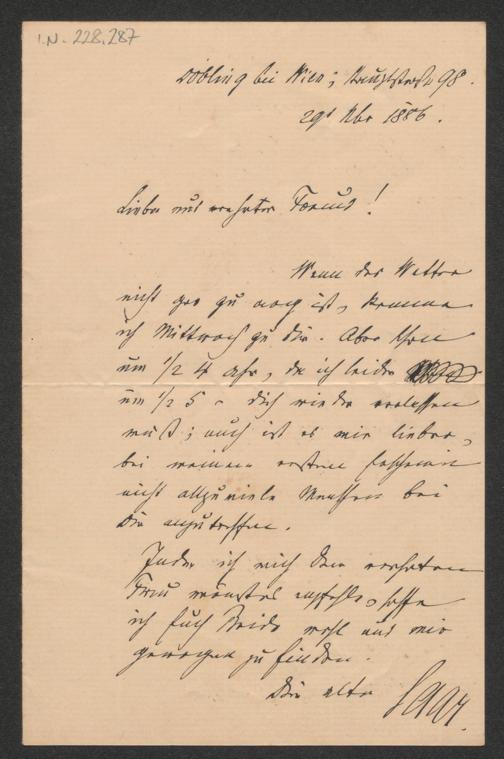 I.N. 228.287
Döbling bei Wien; Hauptstraße 98.
29t Nbr 1886.
Lieber und verehrter Freund!
Wenn das Wetter
nicht gar zu arg ist, komme
ich Mittwoch zu Dir. Aber schon
um 1/2 4 Uhr, da ich leider
um 1/2 5 - Dich wieder verlassen
muß; auch ist es mir lieber,
bei meinem ersten Erscheinen
nicht allzuviele Menschen bei
Dir anzutreffen.
Indem ich mich Deiner verehrten
Frau empfehle, hoffe
ich Euch Beide wohl und mir
gewogen zu finden.
Dein alter Saar.